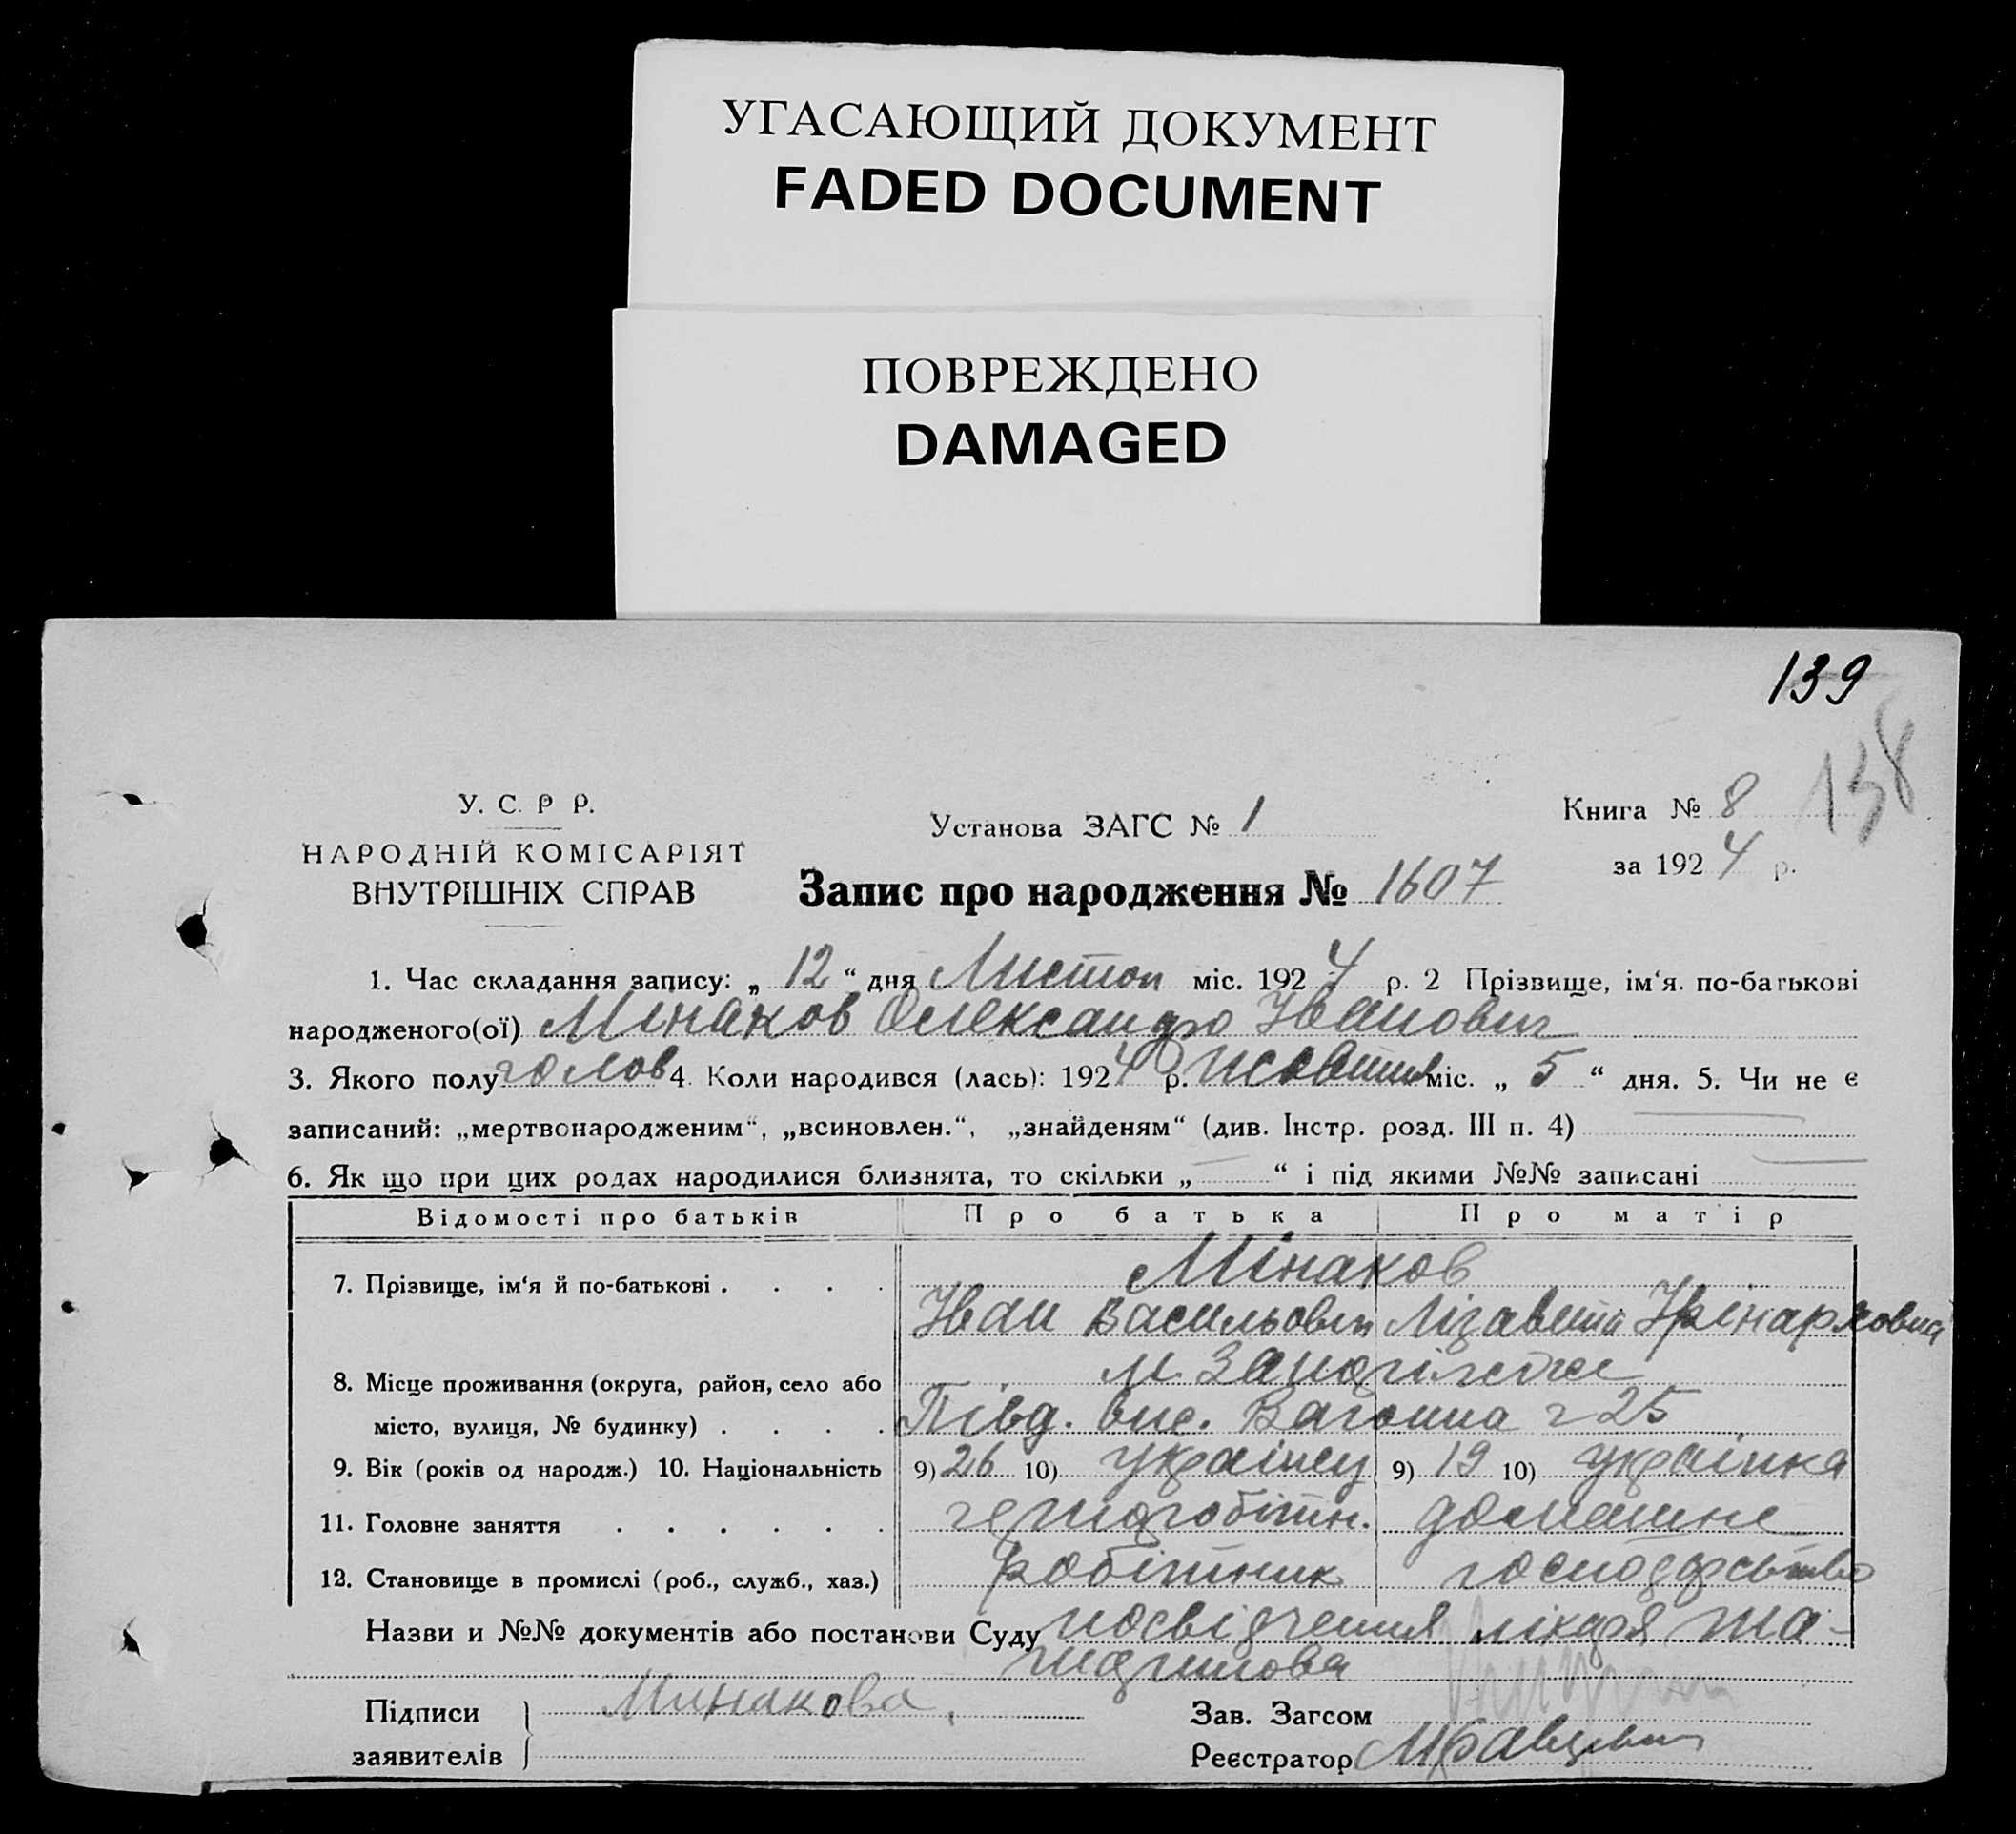 УГАСАЮЩИЙ ДОКУМЕНТ
FADED DOCUMENT
ПОВРЕЖДЕНО
DAMAGED
139
138
У. С. Р Р.
НАРОДНІЙ КОМІСАРІЯТ
ВНУТРІШНІХ СПРАВ
Установа ЗАГС № 1
Книга № 8
за 1924 р.
Запис про народження № 1607
1. Час складання запису: „ 12 “ дня Листоп міс. 1924 р. 2 Прізвище, ім‘я. по-батькові
народженого(ої) Мінаков Олександр Іванович
3. Якого полу голов 4. Коли народився (лась): 1924 р. Жовтня міс. „ 5 “ дня. 5. Чи не є
записаний: „мертвонародженим“, „всиновлен.“, „знайденям“ (див. Інстр. розд. III п. 4)
6. Як що при цих родах народилися близнята, то скільки „ “ і під якими №№ записані
Відомості про батьків Про батька Про матір
7. Прізвище, ім‘я й по-батькові . . . . Мінаков
Іван Васильович Лізавета Ірінарховна
8. Місце проживання (округа, район, село або м. Запоріжже
місто, вулиця, № будинку) . . . . Півд. вис. Вагонна 25
9. Вік (років од народж.) 10. Національність 9) 26 10) українец 9) 19 10) українка
11. Головне заняття . . . . . . домашнє
12. Становище в промислі (роб., служб., хаз.) робітник господарство
Назви и №№ документів або постанови Суду посвідчення лікаря
Підписи Минакова
заявителів
Зав. Загсом
Реєстратор